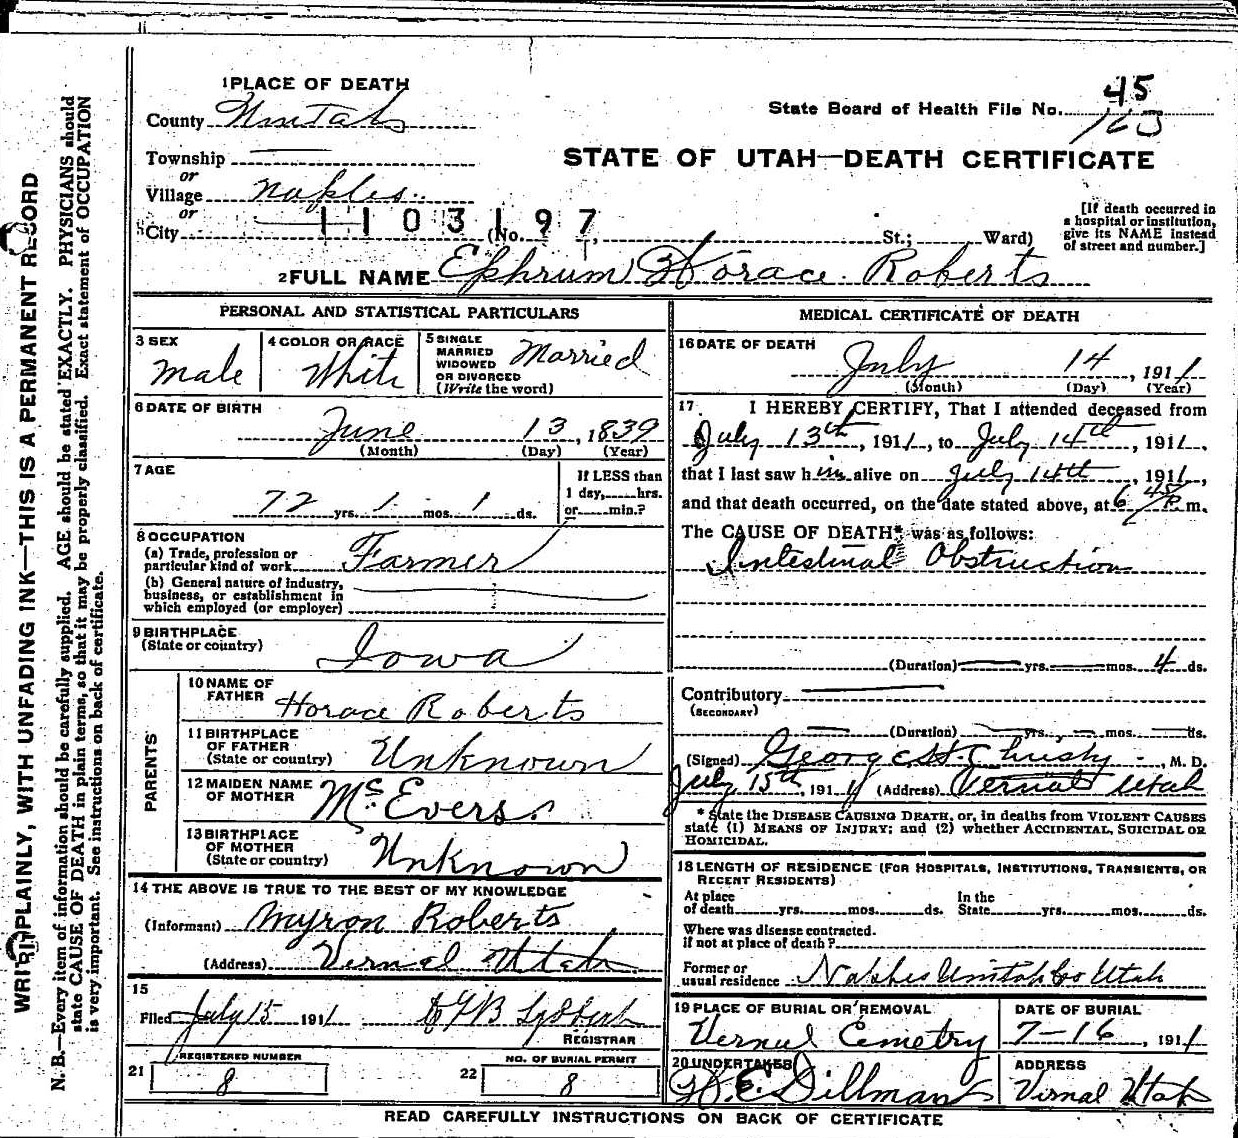 1 PLACE OF DEATH
County Unitah
State Board of Health File No. 45
163
Township
or
STATE OF UTAH—DEATH CERTIFICATE
Village Naples.
or
City 1103197 (No. St.; Ward)
[If death occurred in a hospital or institution, give its NAME instead of street and number.]
2 FULL NAME Ephrum Horace Roberts
PERSONAL AND STATISTICAL PARTICULARS
3 SEX
Male
4 COLOR OR RACE
White
5 SINGLE
MARRIED
WIDOWED
OR DIVORCED
(Write the word)
Married
6 DATE OF BIRTH
June 13, 1839
(Month) (Day) (Year)
7 AGE
72 yrs. 1 mos. 1 ds.
If LESS than
1 day, hrs.
or min.?
8 OCCUPATION
(a) Trade, profession or
particular kind of work Farmer
(b) General nature of industry,
business, or establishment in
which employed (or employer)
9 BIRTHPLACE
(State or country)
Iowa
PARENTS
10 NAME OF
FATHER
Horace Roberts
11 BIRTHPLACE
OF FATHER
(State or country)
Unknown
12 MAIDEN NAME
OF MOTHER
McEvers
13 BIRTHPLACE
OF MOTHER
(State or country)
Unknown
14 THE ABOVE IS TRUE TO THE BEST OF MY KNOWLEDGE
(Informant) Myron Roberts
(Address) Vernal Utah
15
Filed July 15 1911
REGISTRAR
REGISTERED NUMBER
21 8
NO. OF BURIAL PERMIT
22 8
MEDICAL CERTIFICATE OF DEATH
16 DATE OF DEATH
July 14, 1911
(Month) (Day) (Year)
17. I HEREBY CERTIFY, That I attended deceased from
July 13th, 1911, to July 14th, 1911,
that I last saw him alive on July 14th, 1911,
and that death occurred, on the date stated above, at 6 45/P. m.
The CAUSE OF DEATH* was as follows:
Intestinal Obstruction
(Duration) yrs. mos. 4 ds.
Contributory
(SECONDARY)
(Duration) yrs. mos. ds.
(Signed) George H. Christy, M. D.
July 15th, 1911 (Address) Vernal Utah
* State the DISEASE CAUSING DEATH, or, in deaths from VIOLENT CAUSES
state (1) MEANS OF INJURY; and (2) whether ACCIDENTAL, SUICIDAL OR
HOMICIDAL.
18 LENGTH OF RESIDENCE (FOR HOSPITALS, INSTITUTIONS, TRANSIENTS, OR
RECENT RESIDENTS)
At place
of death yrs. mos. ds.
In the
State yrs. mos. ds.
Where was disease contracted.
if not at place of death?
Former or
usual residence Naples Unitah Co Utah
19 PLACE OF BURIAL OR REMOVAL
Vernul Cemetry
DATE OF BURIAL
7-16, 1911
20 UNDERTAKER
W. E. Dillman
ADDRESS
Virnal Utah
READ CAREFULLY INSTRUCTIONS ON BACK OF CERTIFICATE
WRITE PLAINLY, WITH UNFADING INK—THIS IS A PERMANENT RECORD
N. B.—Every item of information should be carefully supplied. AGE should be stated EXACTLY. PHYSICIANS should
state CAUSE OF DEATH in plain terms, so that it may be properly classified. Exact statement of OCCUPATION
is very important. See instructions on back of certificate.